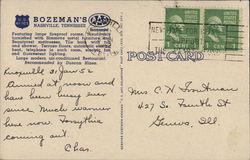 BOZEMAN'S
NASHVILLE, TENNESSEE
Featuring large fireproof rooms, beautifully
furnished with Simmons metal furniture and
Beautyrest mattresses. Tile bath with tub
and shower. Terrazo floors, automatic steam
heat, telephone in each room, electric fan
and fluorescent lighting.
Large modern air-conditioned Restaurant.
Recommended by Duncan Hines.
POST CARD
Knoxville 31 Jan 52
Arrived at noon and
have been busy ever
since. Much warmer
here now. Forsythia
coming out.
Chas.
Mrs. C. H.
427 So. Fourth St
Geneva, Ill.